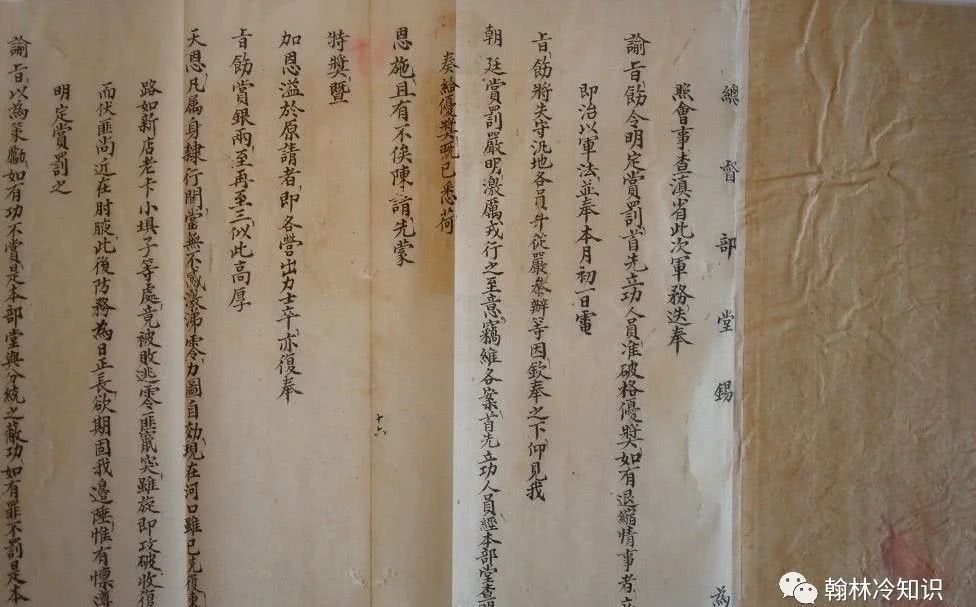 總督部堂錫 為
照會事查滇省此次軍務迭奉
諭旨飭令明定賞罰首先立功人員准破格優獎如有退縮情事者立
即治以軍法並奉本月初一日電
旨飭將失守汛地各員弁從嚴參辦等因欽奉之下仰見我
朝廷賞罰嚴明激厲戎行之至意竊維各案首先立功人員經本部堂查明
奏給優獎既已悉荷
恩施且有不俟陳請先蒙
特獎暨
加恩溢於原請者即各營出力士卒亦復奉
旨飭賞銀兩至再至三似此高厚
天恩凡屬身隸行間當無不感激涕零力圖自効現在河口雖已克復東
路如新店老卡小埧子等處竟被敗逃零匪竄突雖旋即攻破收復
而伏匪尚近在肘腋此後防務為日正長欲期固我邊陲惟有懍遵
明定賞罰之
諭旨以為策勵如有功不賞是本部堂與分統之蔽功如有罪不罰是本
十六
翰林冷知识